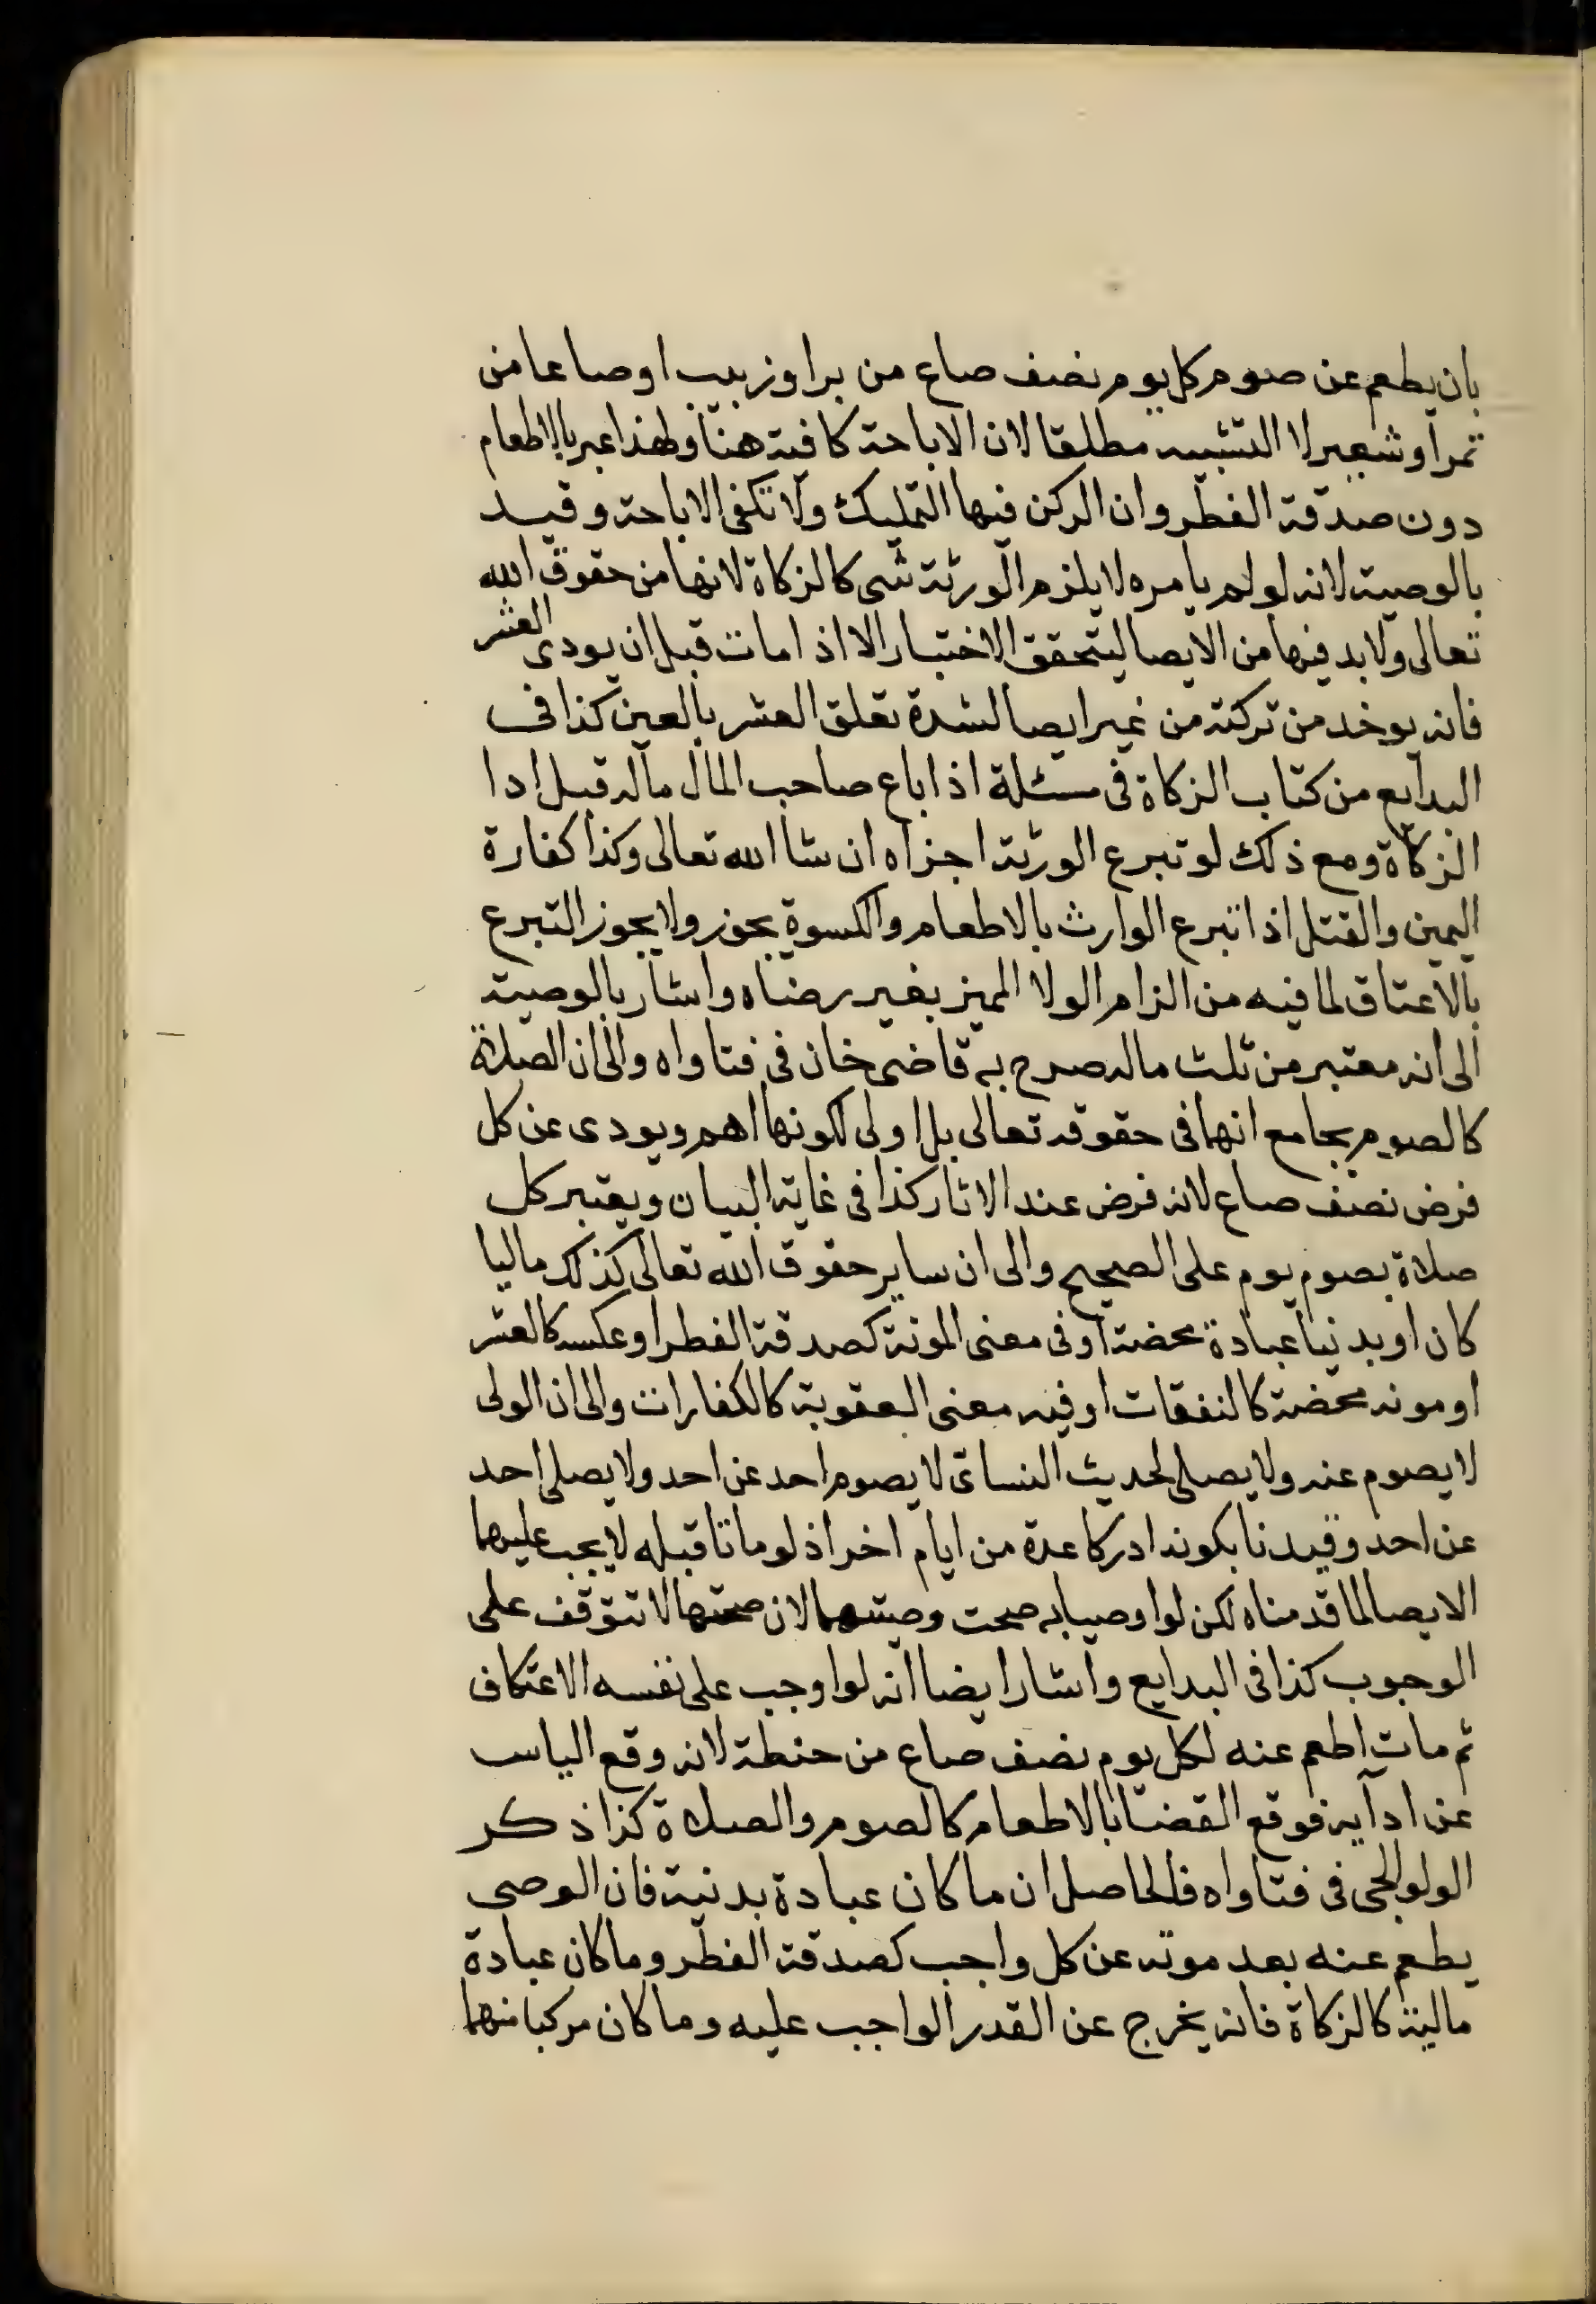 بان يطعم عن صوم كل يوم نصف صاع من بر او زبيب او صاعا من
تمر او شعير لا التشبيه مطلقا لان الاباحة كافية هنا ولهذا عبر بالاطعام
دون صدقة الفطر وان الركن فيها التمليك ولا تكفى الاباحة وقيد
بالوصية لانه لو لم يامره لا يلزم الورثة شى كالزكاة لانها من حقوق الله
تعالى ولا بد فيها من الايصا ليتحقق الاختيار الا اذا مات قبل ان يودى العشر
فانه يوخد من تركته من غير ايصا لشدة تعلق العشر بالعين كذا فى
البدايع من كتاب الزكاة فى مسئلة اذا باع صاحب المال ماله قبل ادا
الزكاة ومع ذلك لو تبرع الورثة اجزاه ان شا الله تعالى وكذا كفارة
اليمين والقتل اذا تبرع الوارث بالاطعام والكسوة يجوز ولا يجوز التبرع
بالاعتاق لما فيه من الزام الولا الميز بغير رضاه واشار بالوصية
الى انه معتبر من ثلث ماله صرح به قاضى خان فى فتاواه والى ان الصلاة
كالصوم بجامع انهما فى حقوقه تعالى بل اولى لكونها اهم ويودى عن كل
فرض نصف صاع لانه فرض عند الاثار كذا فى غاية البيان ويعتبر كل
صلاة بصوم يوم على الصحيح والى ان ساير حقوق الله تعالى كذلك ماليا
كان او بدنيا عبادة محضة او فى معنى المونة كصدقة الفطر او عكسه كالعشر
او مونه محضة كالنفقات او فيه معنى العقوبة كالكفارات والى ان الولى
لا يصوم عنه ولا يصلى لحديث النسائ لا يصوم احد عن احد ولا يصلى احد
عن احد وقيدنا بكونه ادركا عدة من ايام اخر اذ لو ماتا قبله لا يجب عليهما
الايصا لما قدمناه لكن لو اوصيا به صحت وصيتهما لان صحتها لا تتوقف على
الوجوب كذا فى البدايع واشار ايضا انه لو اوجب على نفسه الاعتكاف
ثم مات اطعم عنه لكل يوم نصف صاع من حنطة لانه وقع الياس
عن ادآيه فوقع القضا بالاطعام كالصوم والصلاة كذا ذكر
الولوالجى فى فتاواه فالحاصل ان ما كان عبادة بدنية فان الوصى
يطعم عنه بعد موته عن كل واجب كصدقة الفطر وما كان عبادة
مالية كالزكاة فانه يخرج عن القدر الواجب عليه وما كان مركبا منهما